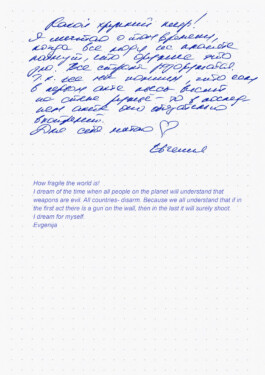 Какой хрупкий мир!
Я мечтаю о том времени,
когда все люди на планете
поймут, что оружие это
зло. Все страны разоружатся.
Т.к. все мы понимаем, что если
в первом акте висит
на стене ружьё – то в последнем
акте оно
выстрелит.
Евгения
How fragile the world is!
I dream of the time when all people on the planet will understand that
weapons are evil. All countries- disarm. Because we all understand that if in
the first act there is a gun on the wall, then in the last it will surely shoot.
I dream for myself
Evgenija